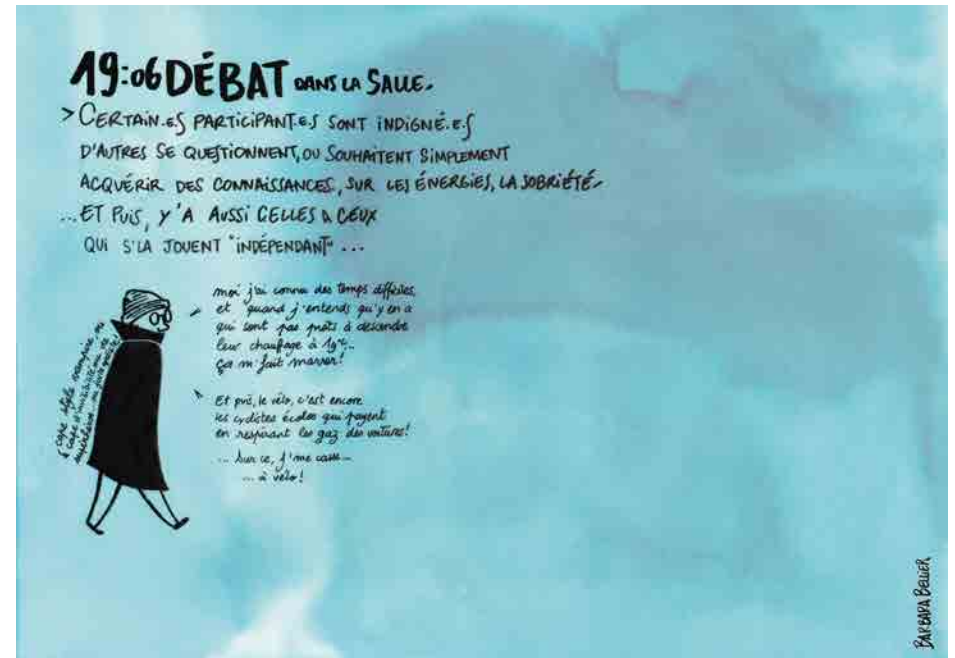 19:06 DÉBAT DANS LA SALLE.
> CERTAIN.ES PARTICIPANT.E.S SONT INDIGNÉ.E.S
D'AUTRES SE QUESTIONNENT, OU SOUHAITENT SIMPLEMENT
ACQUÉRIR DES CONNAISSANCES, SUR LES ÉNERGIES, LA SOBRIÉTÉ.
... ET PUIS, Y'A AUSSI CELLES & CEUX
QUI S'LA JOUENT "INDÉPENDANT" ...
moi j'ai connu des temps difficiles,
et quand j'entends qu'y en a
qui sont pas prêts à descendre
leur chauffage à 19°C..
ça m'fait marrer!
Et pis, le vélo, c'est encore
les cyclistes écolos qui payent
en respirant les gaz des voitures!
... Sur ce, j'me casse...
... à vélo!
cape style vampire ou
cape d'invisibilité ou
BARBARA BELLIER